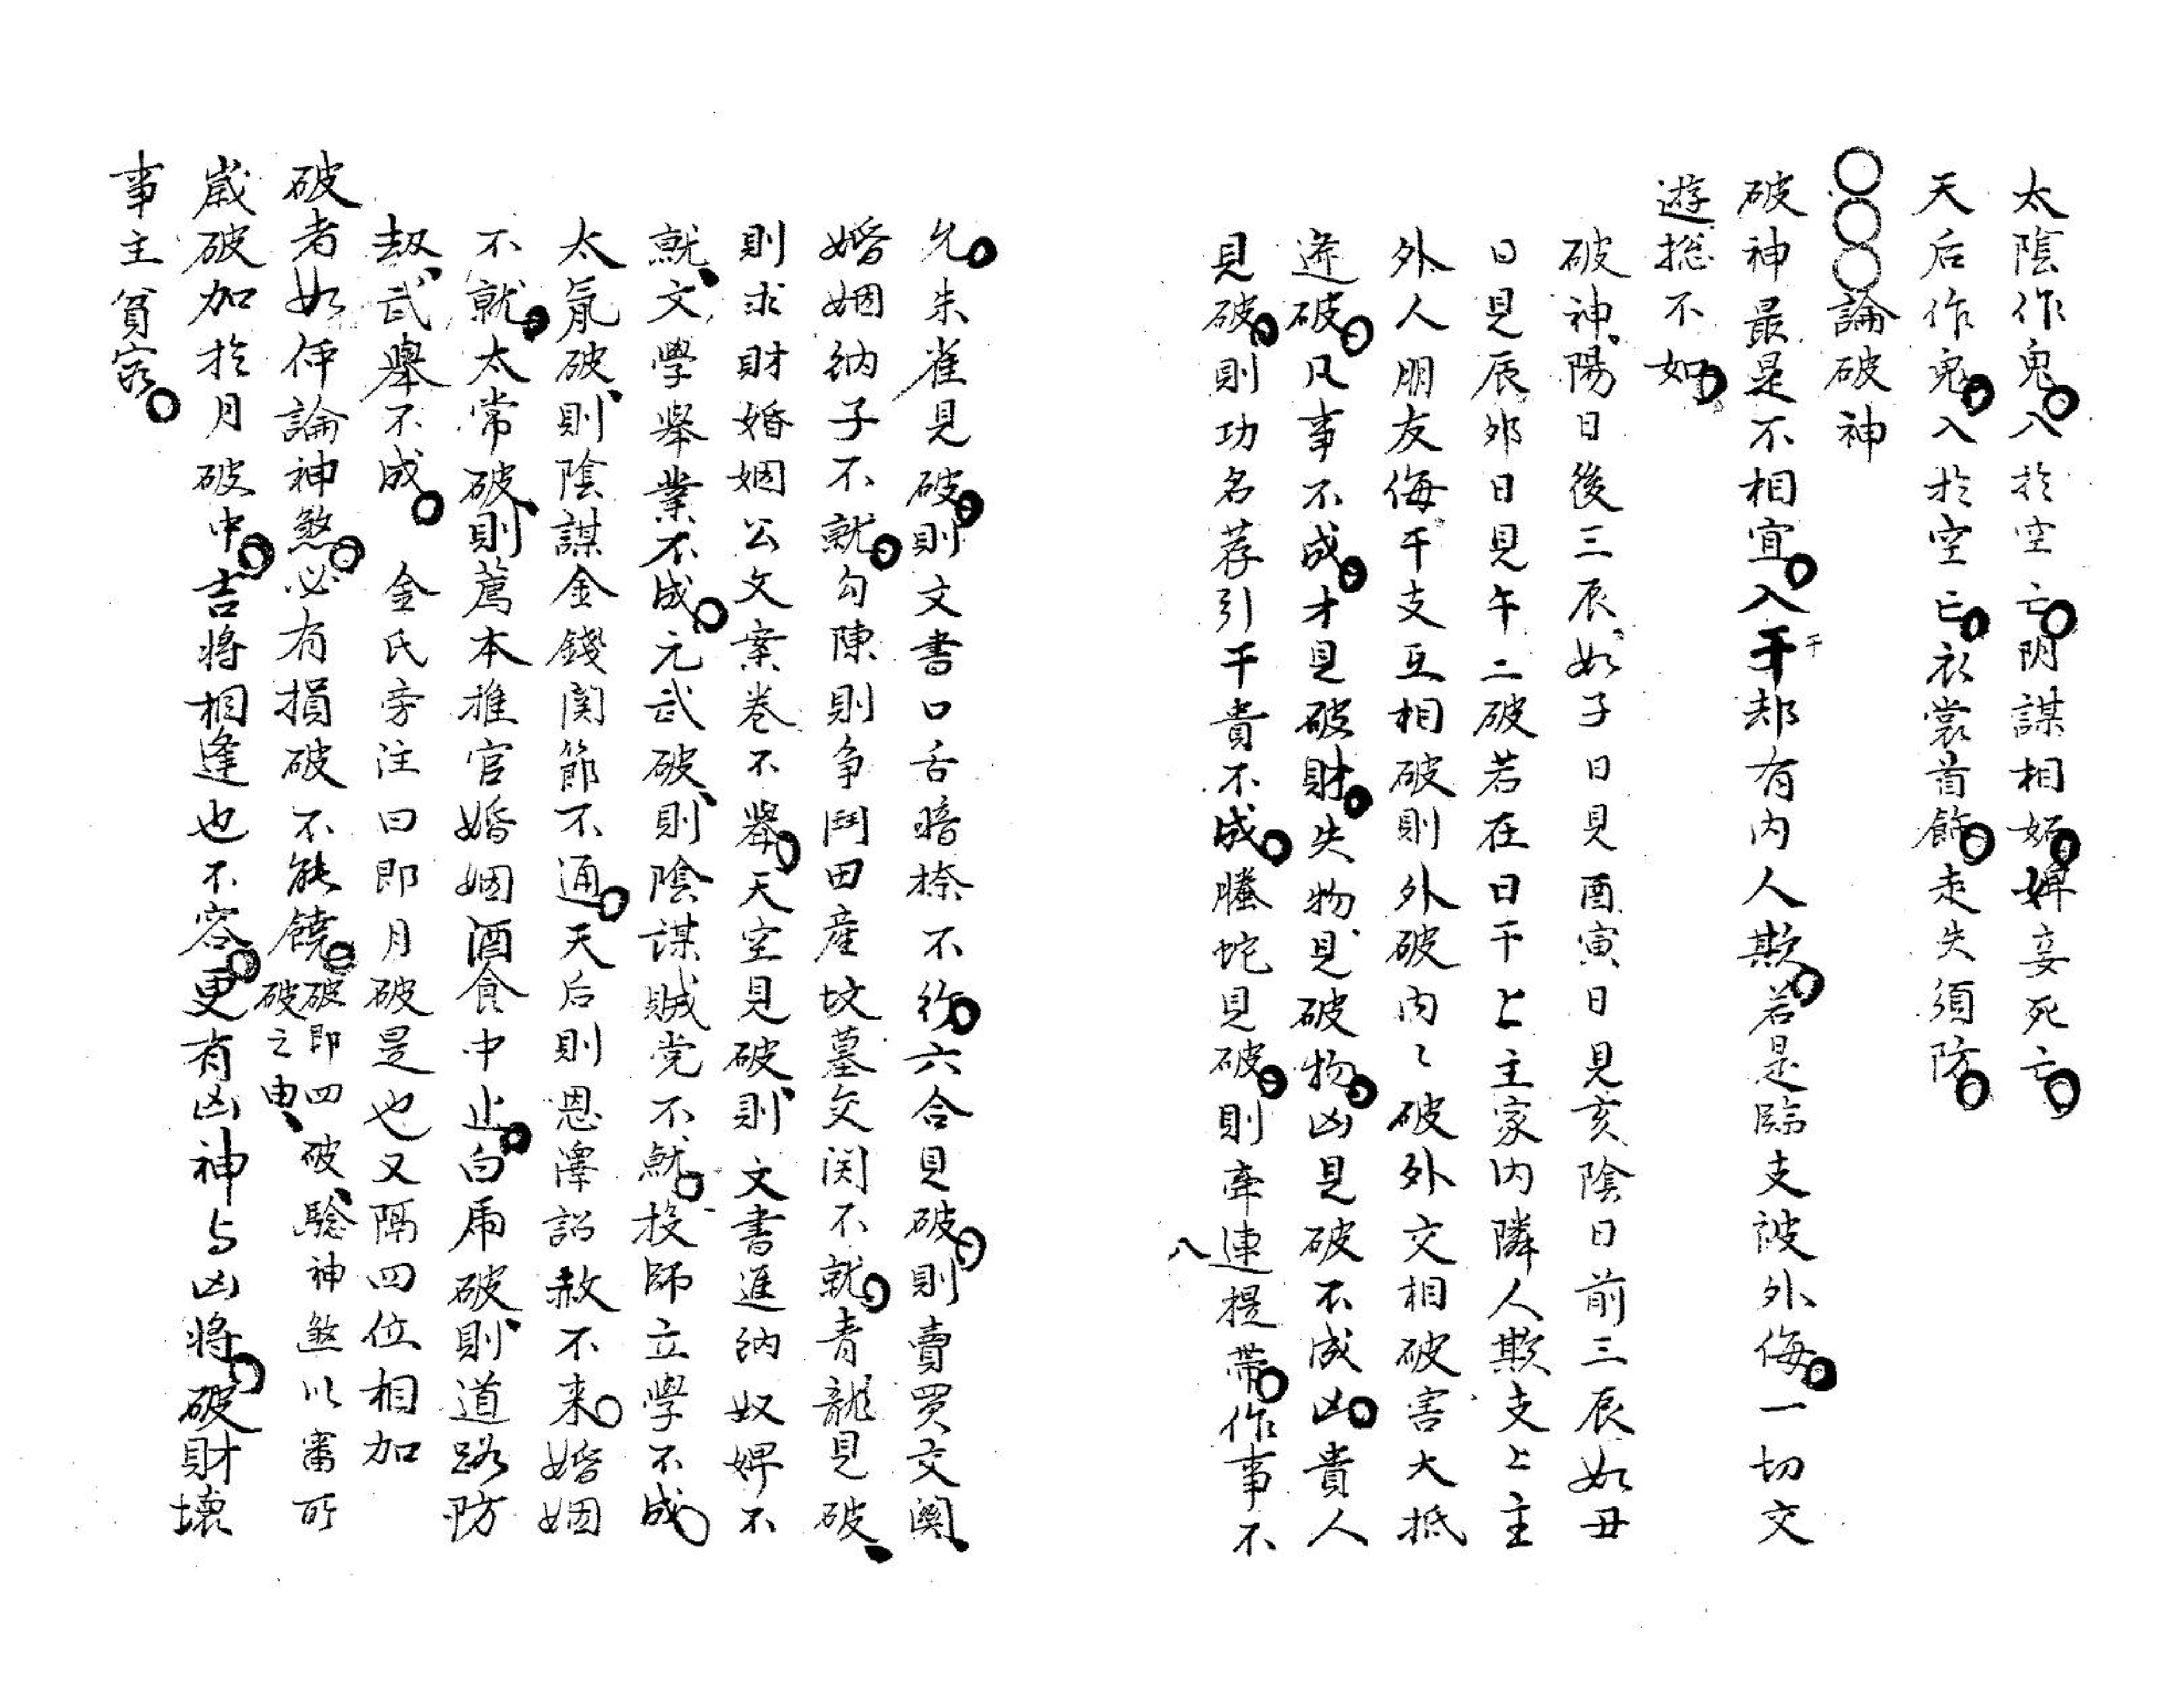 太陰作鬼入於空亡陰謀相妬婢妾死亡
天后作鬼入於空亡衣裳首飾走失須防
○○○論破神
破神最是不相宜入干却有内人欺若是臨支被外侮一切交
遊捴不如
破神陽日後三辰如子日見酉寅日見亥陰日前三辰如丑
日見辰夘日見午二破若在日干上主家内隣人欺支上主
外人朋友侮干支互相破則外破内〻破外交相破害大抵
逢破凡事不成才見破財失物見破物凶見破不成凶貴人
見破則功名荐引干貴不成螣蛇見破則牽連提帶作事不
八
允朱雀見破則文書口舌暗捺不行六合見破則賣買交関
婚姻納子不就勾陳則争鬥田産坟墓交関不就青龍見破
則求財婚姻公文案卷不舉天空見破則文書進納奴婢不
就文學舉業不成元武破則陰謀賊党不就投師立學不成
太陰破則陰謀金錢関節不通天后則恩澤詔赦不来婚姻
不就太常破則薦本推官婚姻酒食中止白虎破則道路防
刼武舉不成 金氏旁注曰即月破是也又隔四位相加
破者如何論神煞必有損破不能饒破即四破驗神煞以審所
破之由
歲破加於月破中吉将相逢也不容更有凶神与凶将破財壞
事主貧窮